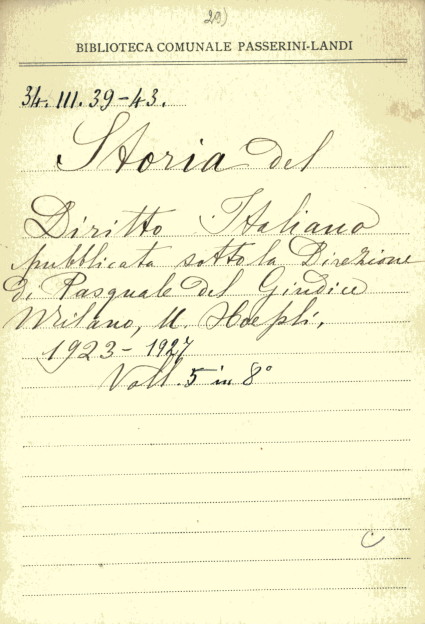 29)
BIBLIOTECA COMUNALE PASSERINI-LANDI
34. III. 39-43.
Storia del
Diritto Italiano
pubblicata sotto la Direzione
di Pasquale del Giudice
Milano, U. Hoepli,
1923-1927
Voll. 5 in 8°